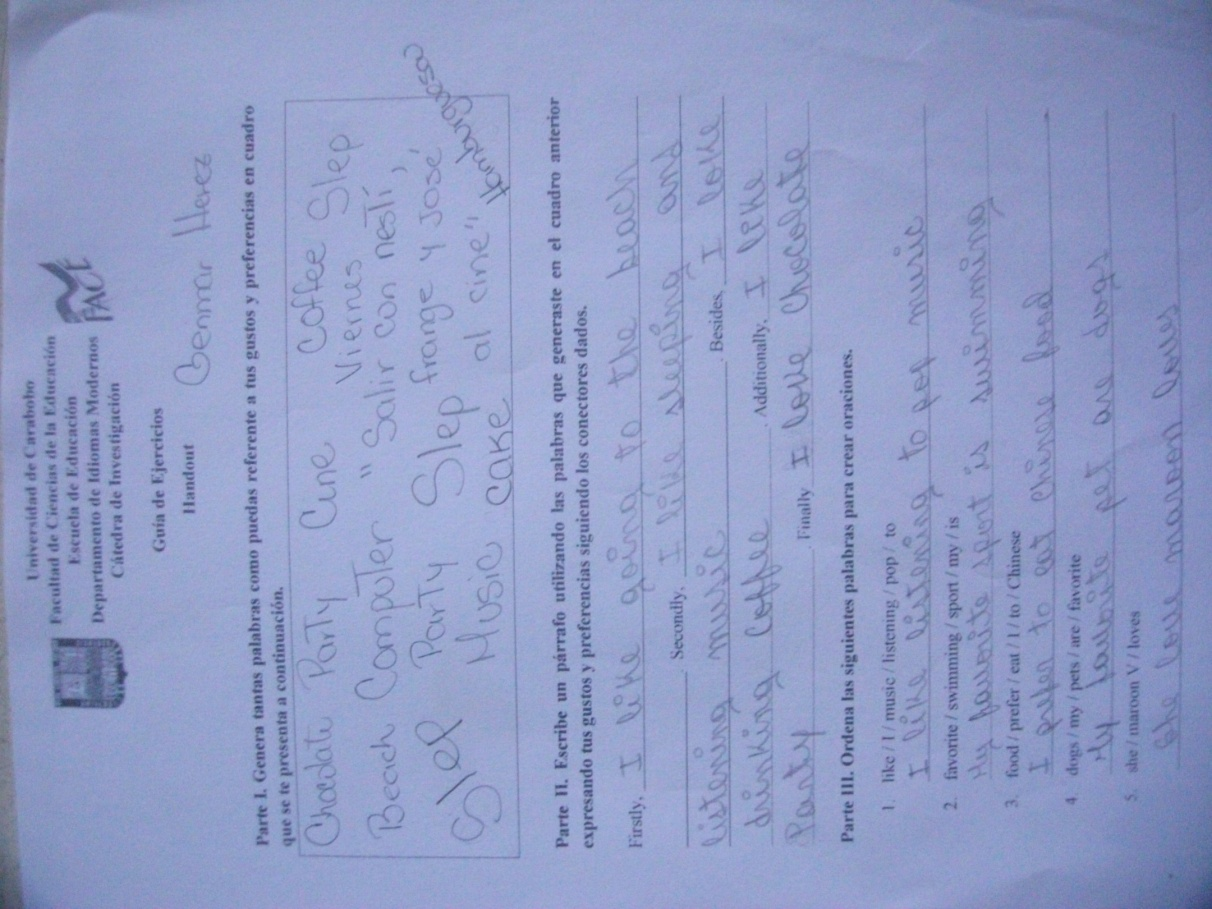 Universidad de Carabobo
Facultad de Ciencias de la Educación
Escuela de Educación
Departamento de Idiomas Modernos
Cátedra de Investigación
FACE
Guía de Ejercicios
Handout
Parte I. Genera tantas palabras como puedas referente a tus gustos y preferencias en cuadro
que se te presenta a continuación.
Chocolate Party Cine Coffee Slep
Beach Computer Viernes "Salir con nestí,
Slep Party Slep frange y José
Music cake al cine" Hamburguesa
Parte II. Escribe un párrafo utilizando las palabras que generaste en el cuadro anterior
expresando tus gustos y preferencias siguiendo los conectores dados.
Firstly, I like going to the beach
. Secondly, I like sleeping and
listening music . Besides, I love
drinking coffee . Additionally, I like
Party . Finally I love Chocolate
Parte III. Ordena las siguientes palabras para crear oraciones.
1. like / I / music / listening / pop / to
I like listening to pop music
2. favorite / swimming / sport / my / is
My favorite sport is swimming
3. food / prefer / eat / I / to / Chinese
I prefer to eat chinese food
4 dogs / my / pets / are / favorite
My favorite pet are dogs
5. she / maroon V / loves
She love maroon